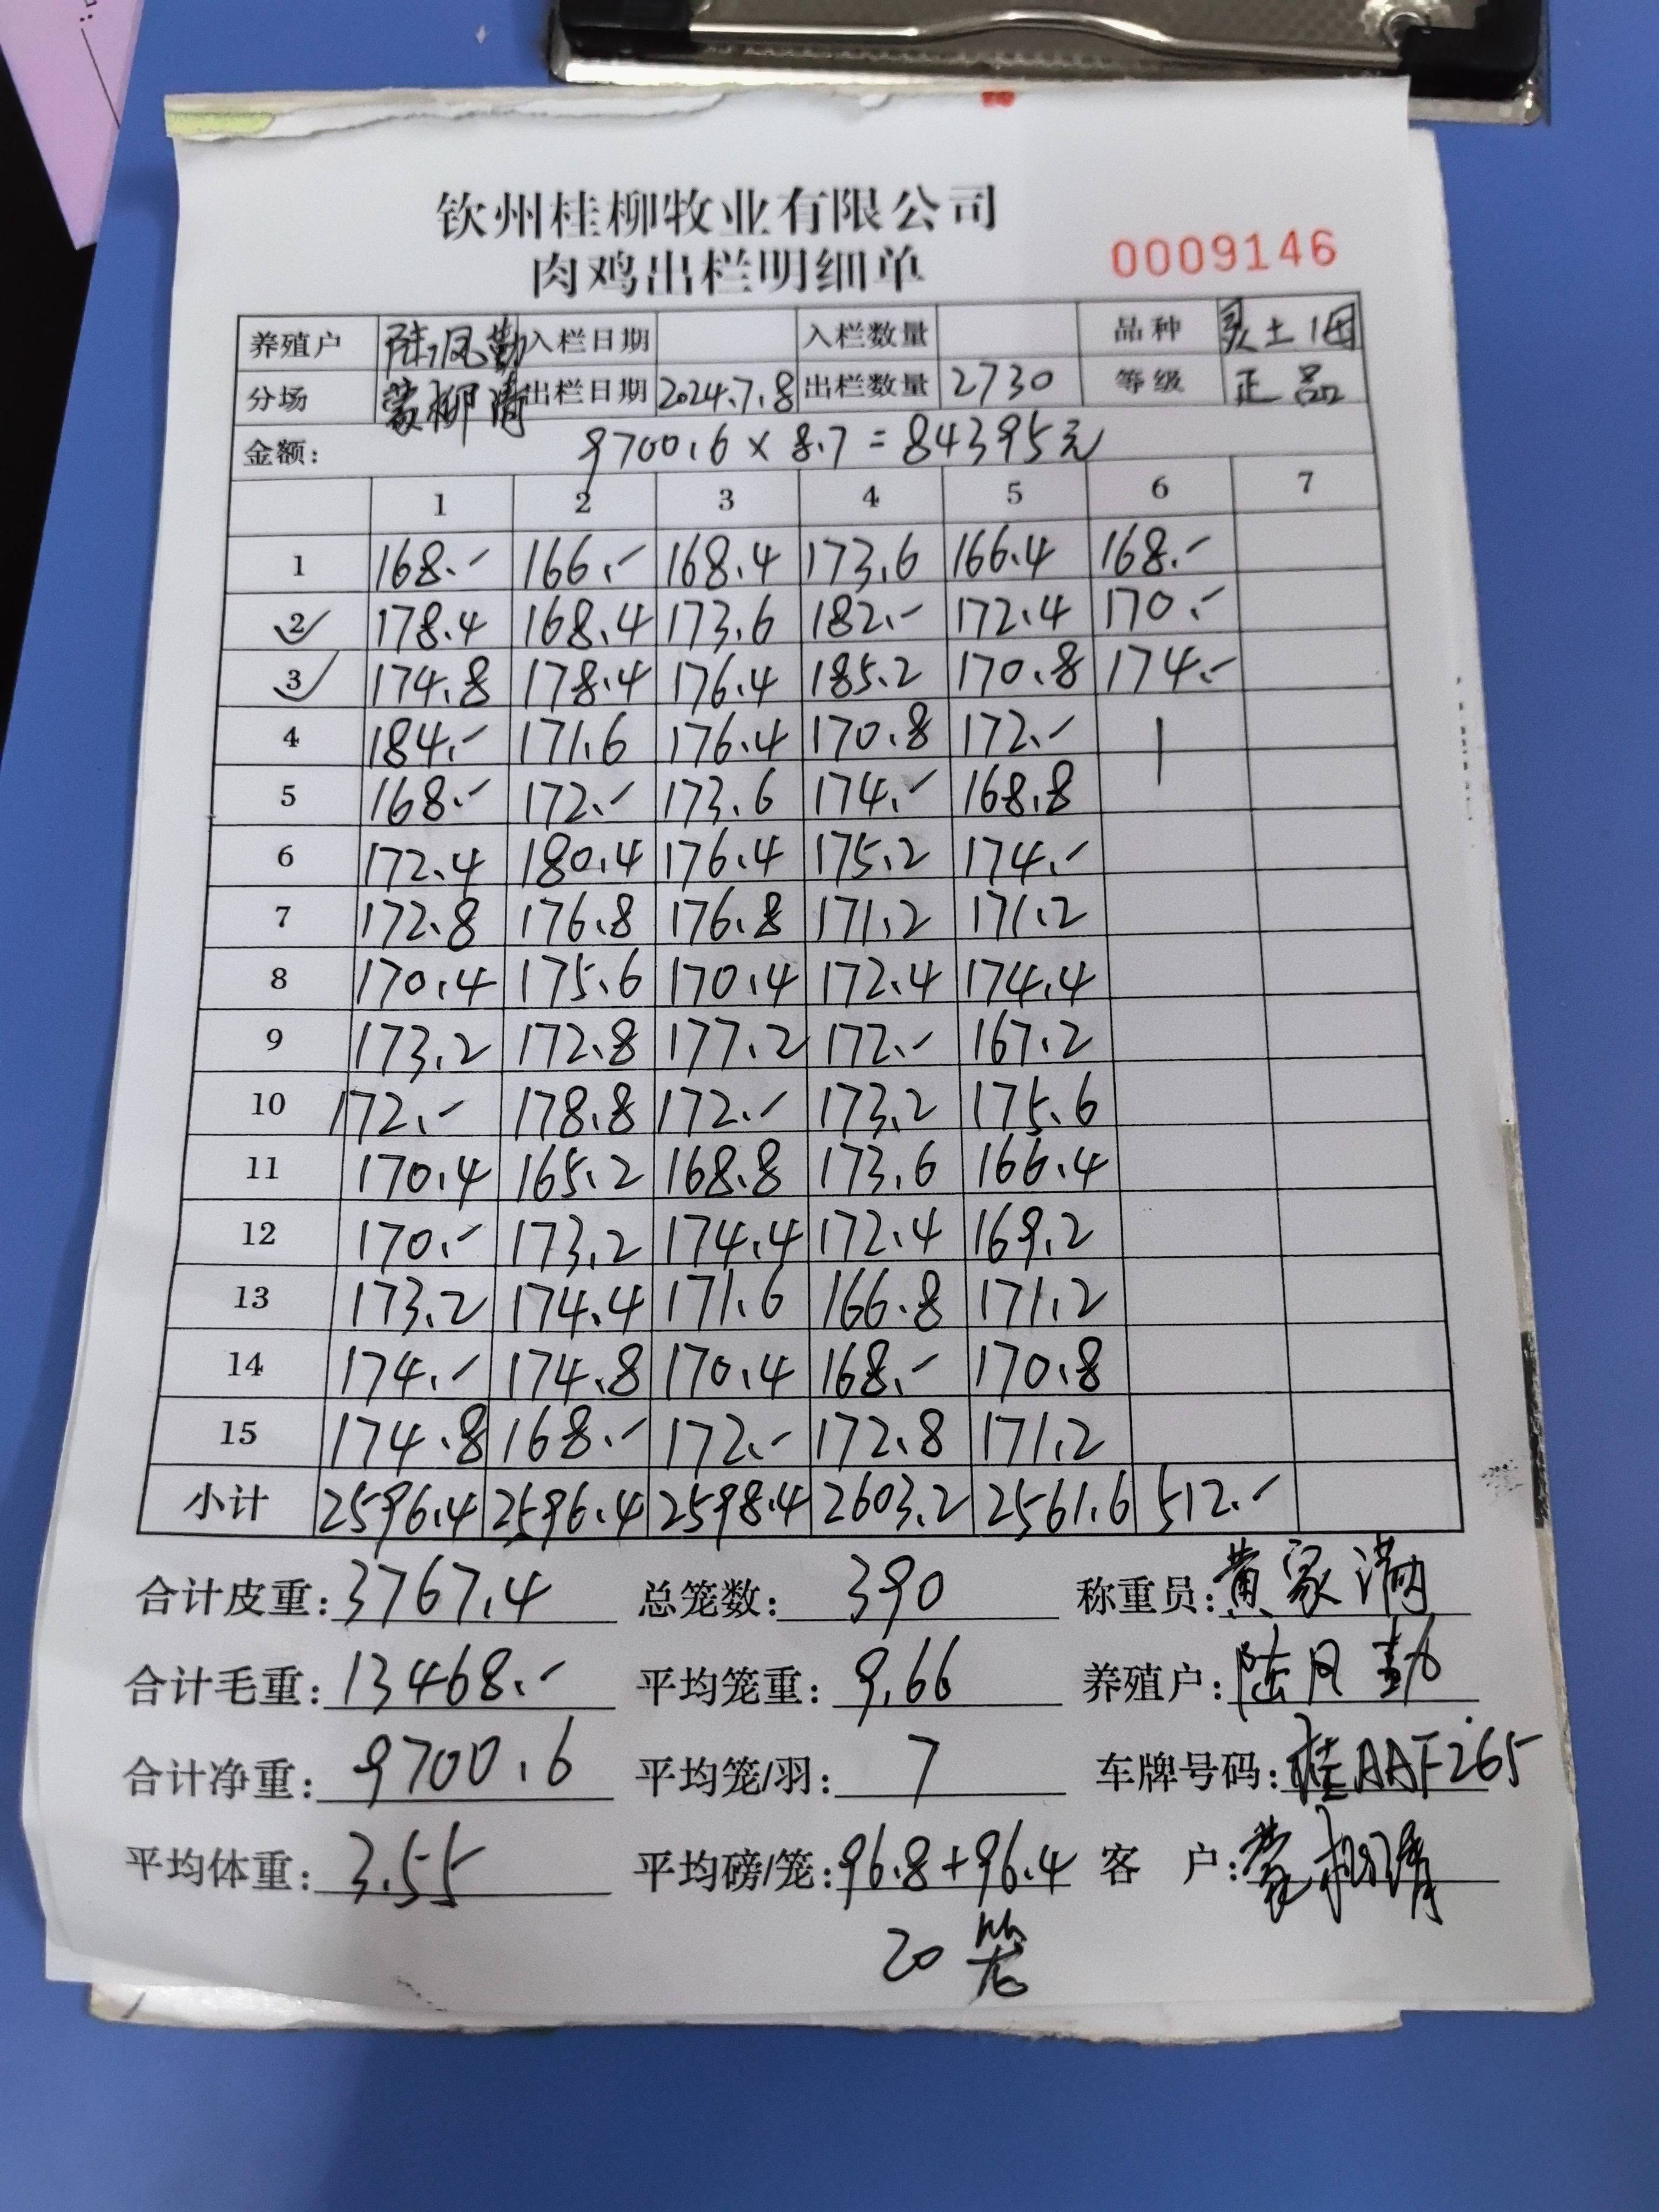 钦州桂柳牧业有限公司
肉鸡出栏明细单
0009146
养殖户 陆凤勤 入栏日期 入栏数量 品种 土
分场 蒙柳清 出栏日期 2024.7.8 出栏数量 2730 等级 正品
金额: 9700.6 × 8.7 = 84395元
1 2 3 4 5 6 7
1 168.- 166.- 168.4 173.6 166.4 168.-
2 178.4 168.4 173.6 182.- 172.4 170.-
3 174.8 178.4 176.4 185.2 170.8 174.-
4 184.- 171.6 176.4 170.8 172.-
5 168.- 172.- 173.6 174.- 168.8
6 172.4 180.4 176.4 175.2 174.-
7 172.8 176.8 176.8 171.2 171.2
8 170.4 175.6 170.4 172.4 174.4
9 173.2 172.8 177.2 172.- 167.2
10 172.- 178.8 172.- 173.2 175.6
11 170.4 165.2 168.8 173.6 166.4
12 170.- 173.2 174.4 172.4 169.2
13 173.2 174.4 171.6 166.8 171.2
14 174.- 174.8 170.4 168.- 170.8
15 174.8 168.- 172.- 172.8 171.2
小计 2596.4 2596.4 2598.4 2603.2 2561.6 512.-
合计皮重: 3767.4 总笼数: 390 称重员: 黄家满
合计毛重: 13468.- 平均笼重: 9.66 养殖户: 陆凤勤
合计净重: 9700.6 平均笼/羽: 7 车牌号码: 桂AAF265
平均体重: 3.55 平均磅/笼: 96.8+96.4 客户: 蒙柳清
20笼